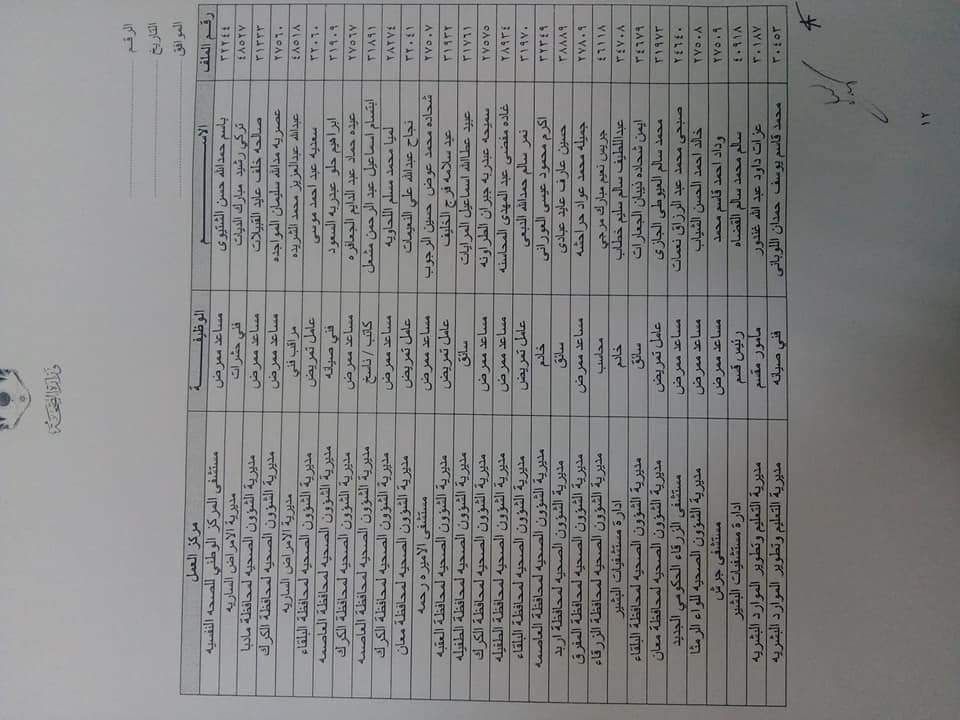 ١٢
الرقم
التاريخ
الموافق
وزارة الصحة
رقم الملف الاســـم الوظيفـــة مركز العمل
٣٢٢٤٤ باسم حمدالله حسن الشنيوي مساعد ممرض مستشفى المركز الوطني للصحه النفسيه
٤٨٥٢٧ تركي رشيد مبارك الديات فني حشرات مديرية الامراض الساريه
٣١٣٣٢ صالحه خلف عايد القبيلات مساعد ممرض مديرية الشؤون الصحيه لمحافظة مادبا
٢٧٥٦٠ عصريه مدالله سليمان المواجده مساعد ممرض مديرية الشؤون الصحيه لمحافظة الكرك
٤٨٥١٨ عبدالله عبدالعزيز محمد الشريده مراقب فني مديرية الامراض الساريه
٣٢٠٦٠ سعديه عبد احمد موسى عامل تمريض مديرية الشؤون الصحيه لمحافظة البلقاء
٣١٩٠٩ ابراهيم حلو عبدربه السعود فني صيانه مديرية الشؤون الصحيه لمحافظة العاصمه
٢٧٥٦٧ عيده حماد عبد الدايم الجعافره مساعد ممرض مديرية الشؤون الصحيه لمحافظة الكرك
٣١٨٩١ ابتسام اسماعيل عبد الرحمن مشعل كاتب / ناسخ مديرية الشؤون الصحيه لمحافظة العاصمه
٢٨٢٧٤ لميا محمد مسلم اللحاويه مساعد ممرض مديرية الشؤون الصحيه لمحافظة الكرك
٣٢٠٤١ نجاح عبدالله علي النعيمات عامل تمريض مديرية الشؤون الصحيه لمحافظة معان
٢٥٥٠٧ شحاده محمد عوض حسين الرجوب مساعد ممرض مستشفى الاميره رحمه
٣١٩٣٢ عيد سلامه فرج الخليف عامل تمريض مديرية الشؤون الصحيه لمحافظة العقبه
٣١٧٦١ عبيد عطاالله اسماعيل المرايات سائق مديرية الشؤون الصحيه لمحافظة الطفيله
٢٧٥٧٥ سميحه عبدربه جبران الطراونه مساعد ممرض مديرية الشؤون الصحيه لمحافظة الكرك
٢٨٩٣٤ غاده مفضي عبد المهدي المحاسنه مساعد ممرض مديرية الشؤون الصحيه لمحافظة الطفيله
٣١٩٧٠ نمر سالم حمدالله النبعي عامل تمريض مديرية الشؤون الصحيه لمحافظة البلقاء
٣٢٣٤٩ اكرم محمود عيسى العوراني خادم مديرية الشؤون الصحيه لمحافظة العاصمه
٣٨٨٨٩ حسين عارف عايد عبادي سائق مديرية الشؤون الصحيه لمحافظة اربد
٢٧٨٠٩ جميله محمد عواد حراحشه مساعد ممرض مديرية الشؤون الصحيه لمحافظة المفرق
٤٦١١٨ جريس نعيم مبارك مرجي محاسب مديرية الشؤون الصحيه لمحافظة الزرقاء
٣٤٧٠٨ عبداللطيف سالم سليم خطاب خادم ادارة مستشفيات البشير
٣٤٦٧٩ ايمن شحاده ذيبان الحجارات سائق مديرية الشؤون الصحيه لمحافظة البلقاء
٣١٩٧٣ محمد سالم العيوطي الجازي عامل تمريض مديرية الشؤون الصحيه لمحافظة معان
٢٦٦٤٠ صبحي محمد عبد الرزاق نعمات مساعد ممرض مستشفى الزرقاء الحكومي الجديد
٢٧٥٠٨ خالد احمد الحسن الشياب مساعد ممرض مديرية الشؤون الصحيه للواء الرمثا
٢٧٥٠٩ وداد احمد قاسم محمد مساعد ممرض مستشفى جرش
٤٠٩١٨ سالم محمد سالم القضاه رئيس قسم ادارة مستشفيات البشير
٣٠١٨٧ عزات داود عبد الله غندور مأمور مقسم مديرية التعليم وتطوير الموارد البشريه
٣٠٤٥٣ محمد قاسم يوسف حمدان اللوباني فني صيانه مديرية التعليم وتطوير الموارد البشريه